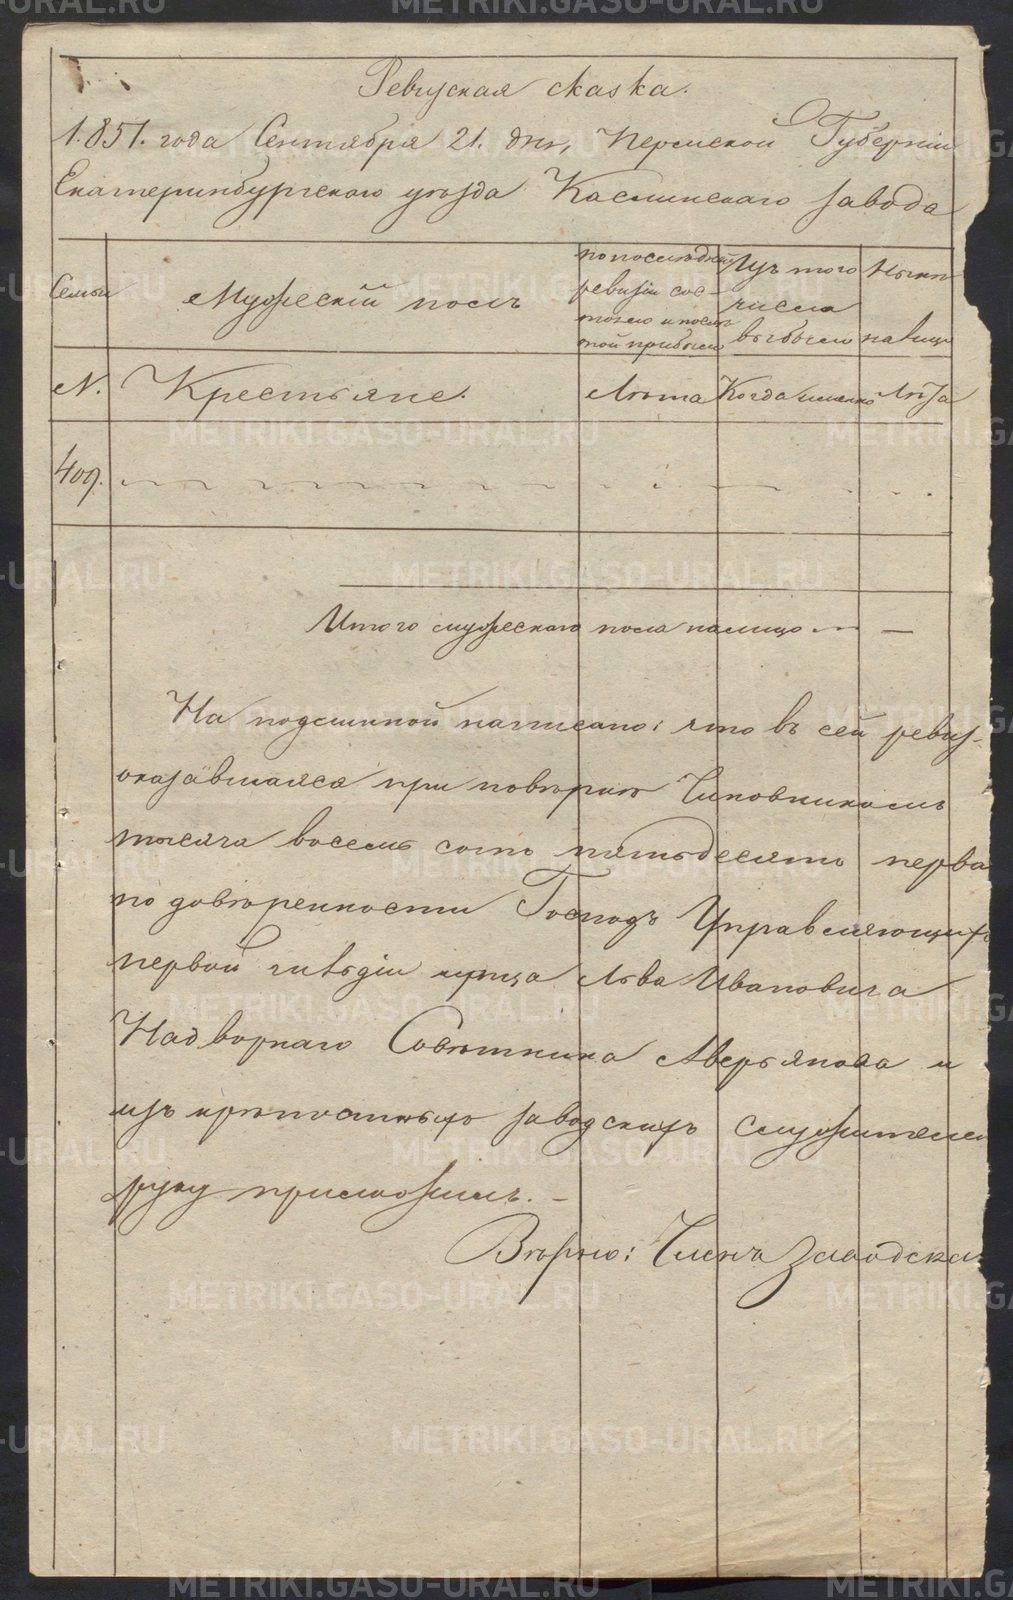 Ревизская сказка.
1.851. года Сентября 21. дня, Пермской Губернии
Екатеринбургского уѣзда Каслинскаго завода
Семьи
Мужескій полъ
по послѣдней
ревизіи сос-
тояло и послѣ
той прибыло
Изъ того
числа
выбыло
Нынѣ
налицо
N.
Крестьяне.
Лѣта
Когда именно
Лѣта
409.
Итого мужескаго пола налицо — —
На подлинной написано: что въ сей ревиз-
оказавшаяся при повѣркѣ Чиновникомъ
тысяча восемь сотъ пятьдесятъ перва
по довѣренности Господъ Управляющихъ
первой гильдіи купца Льва Ивановича
Надворнаго Совѣтника Аверьянова и
изъ крѣпостныхъ заводскихъ служителей
руку приложилъ. –
Вѣрно: Членъ Заводска
METRIKI.GASO-URAL.RU